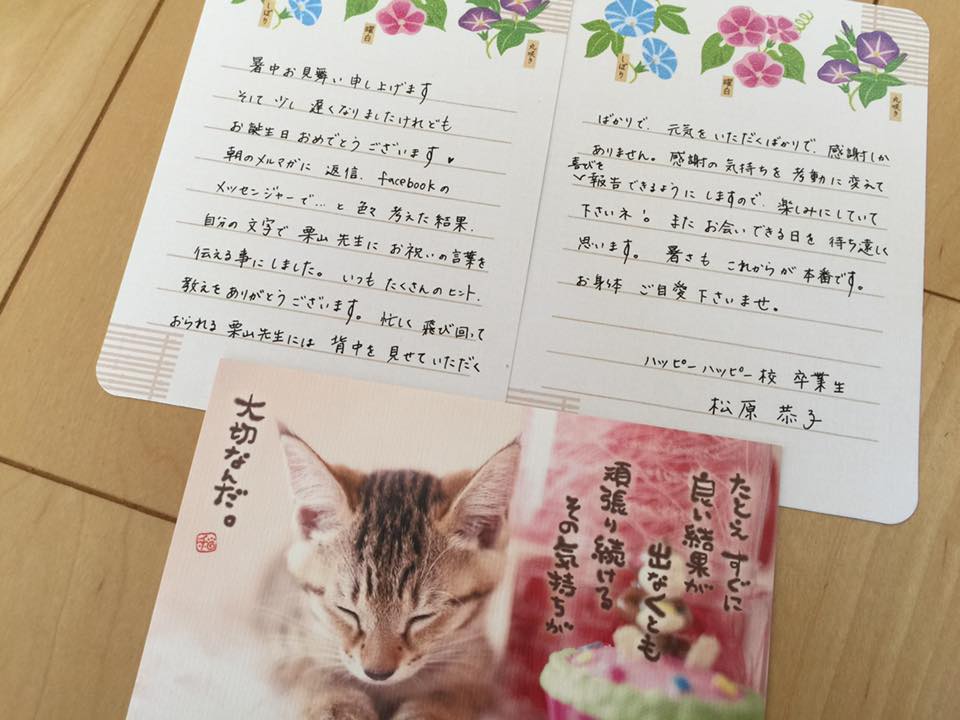 しぼり
曜白
丸咲き
暑中お見舞い申し上げます
そして少し遅くなりましたけれども
お誕生日おめでとうございます♥
朝のメルマガに返信、facebookの
メッセンジャーで…と色々考えた結果、
自分の文字で栗山先生にお祝いの言葉を
伝える事にしました。いつもたくさんのヒント、
教えをありがとうございます。忙しく飛び回って
おられる栗山先生には背中を見せていただく
しぼり
曜白
丸咲き
ばかりで、元気をいただくばかりで、感謝しか
ありません。感謝の気持ちを考動に変えて
喜びを
報告できるようにしますので、楽しみにしていて
下さいネ!。またお会いできる日を待ち遠しく
思います。暑さもこれからが本番です。
お身体ご自愛下さいませ。
ハッピーハッピー校卒業生
松原恭子
たとえすぐに
良い結果が
出なくとも
頑張り続ける
その気持ちが
大切なんだ。